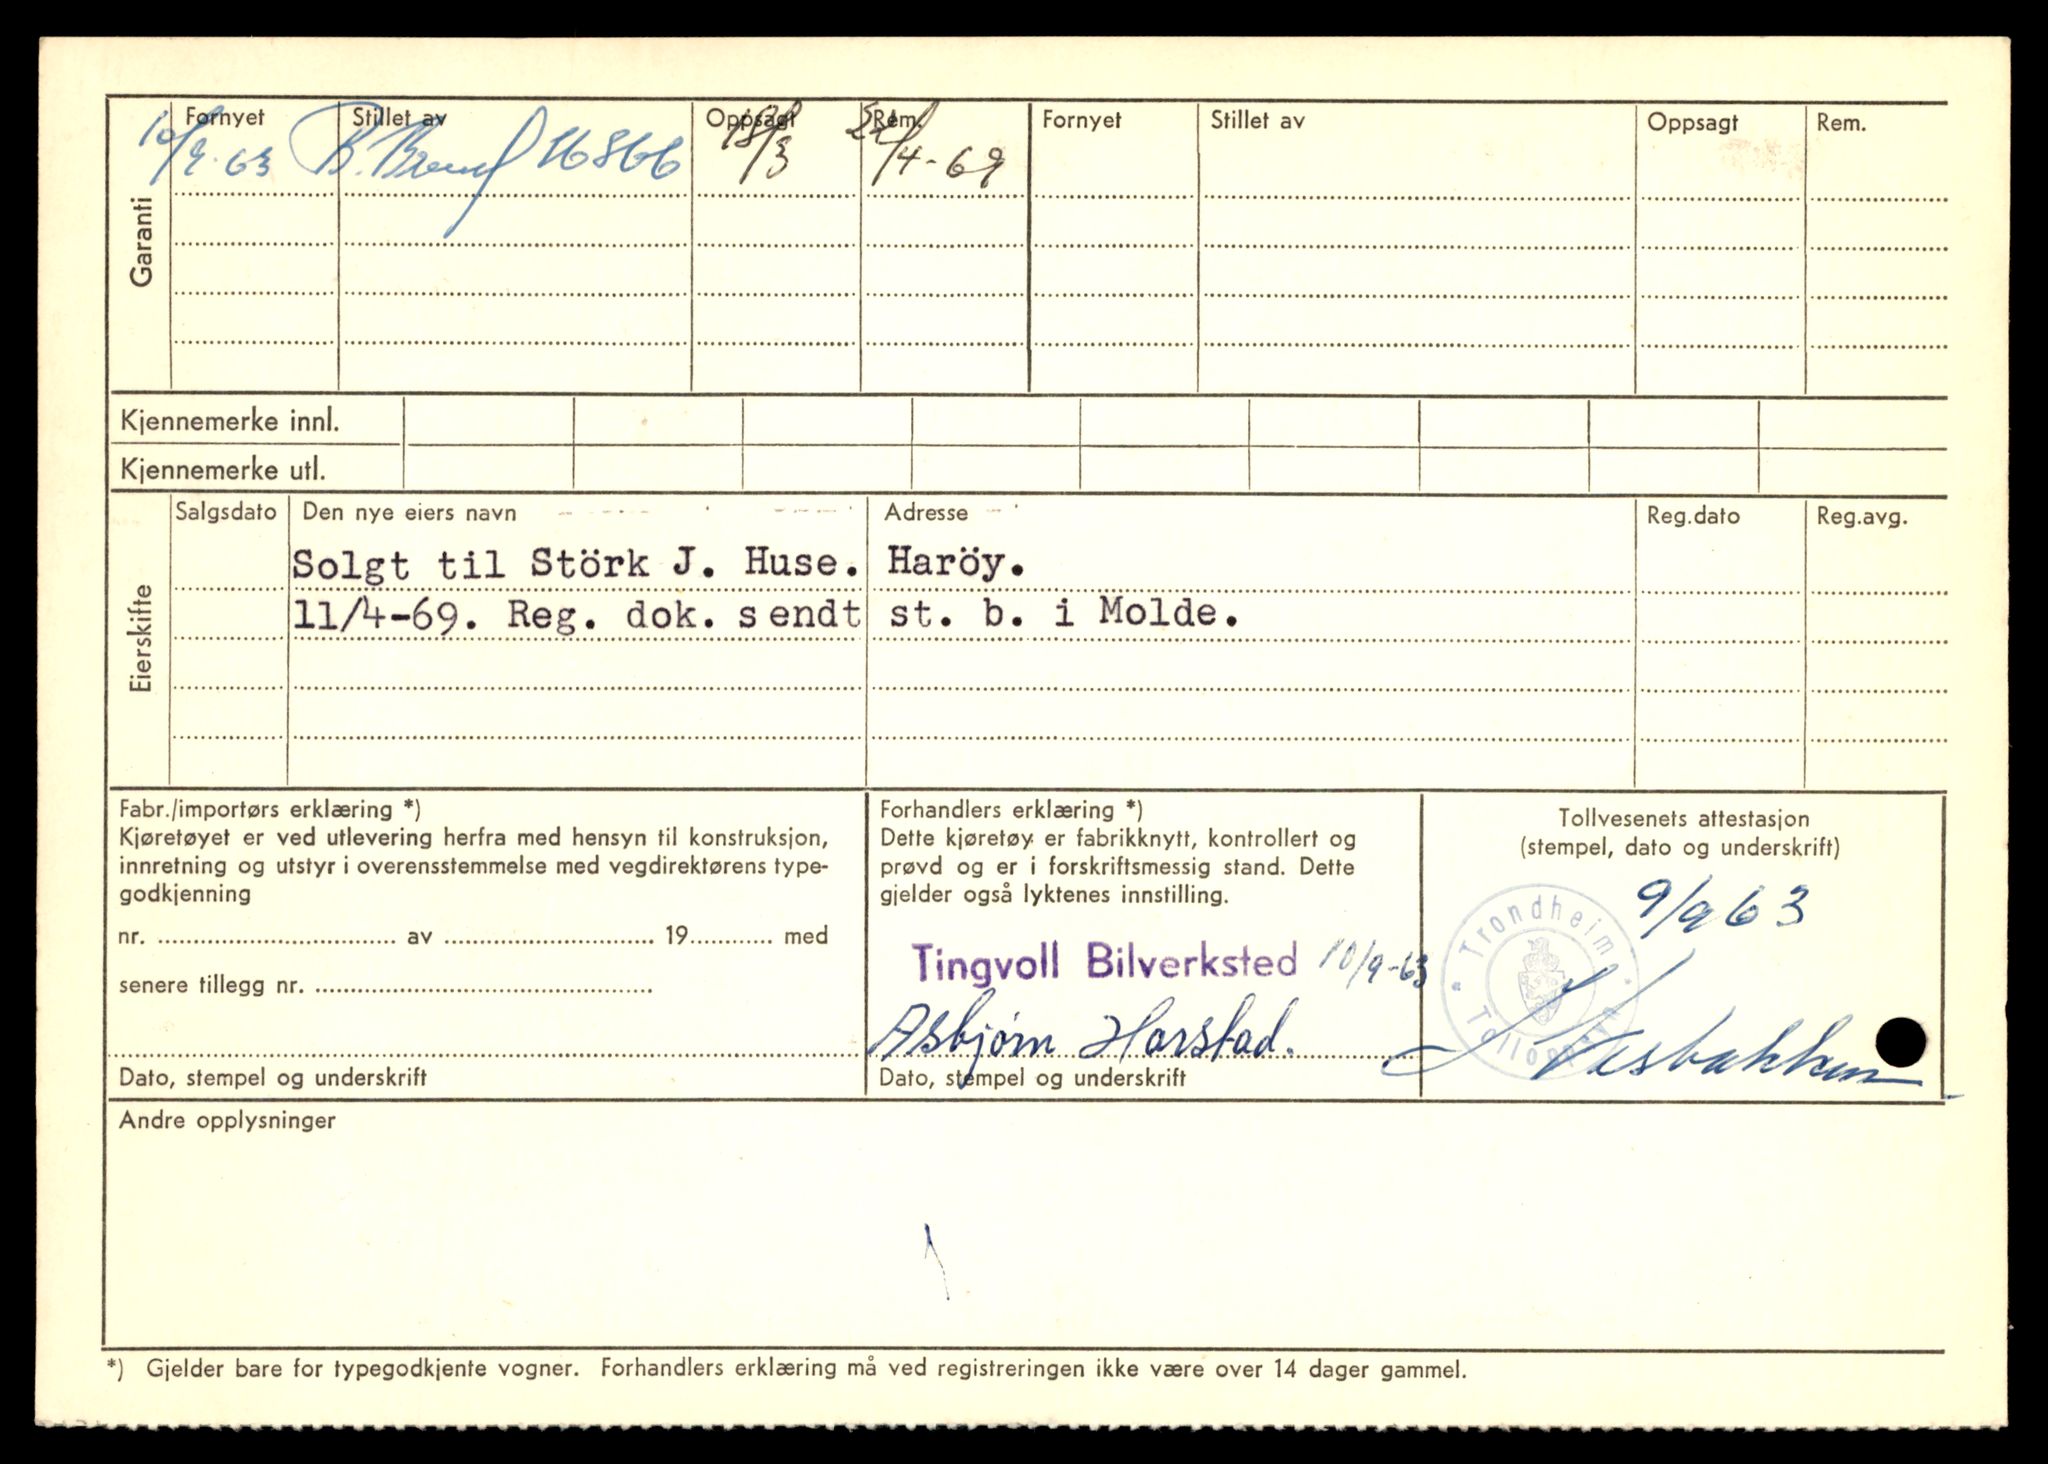 Garanti
Fornyet Stillet av Oppsagt Rem. Fornyet Stillet av Oppsagt Rem.
10/9-63 B. 16866 18/3 22/4-69
Kjennemerke innl.
Kjennemerke utl.
Eierskifte
Salgsdato Den nye eiers navn Adresse Reg.dato Reg.avg.
Solgt til Störk J. Huse. Haröy.
11/4-69. Reg. dok. sendt st. b. i Molde.
Fabr./importørs erklæring *)
Kjøretøyet er ved utlevering herfra med hensyn til konstruksjon,
innretning og utstyr i overensstemmelse med vegdirektørens type-
godkjenning
nr. .................................... av ............................... 19............ med
senere tillegg nr. ..................................................
Dato, stempel og underskrift
Forhandlers erklæring *)
Dette kjøretøy er fabrikknytt, kontrollert og
prøvd og er i forskriftsmessig stand. Dette
gjelder også lyktenes innstilling.
Tingvoll Bilverksted 10/9-63
Asbjørn Harstad.
Dato, stempel og underskrift
Tollvesenets attestasjon
(stempel, dato og underskrift)
9/9 63
Trondheim
Andre opplysninger
*) Gjelder bare for typegodkjente vogner. Forhandlers erklæring må ved registreringen ikke være over 14 dager gammel.